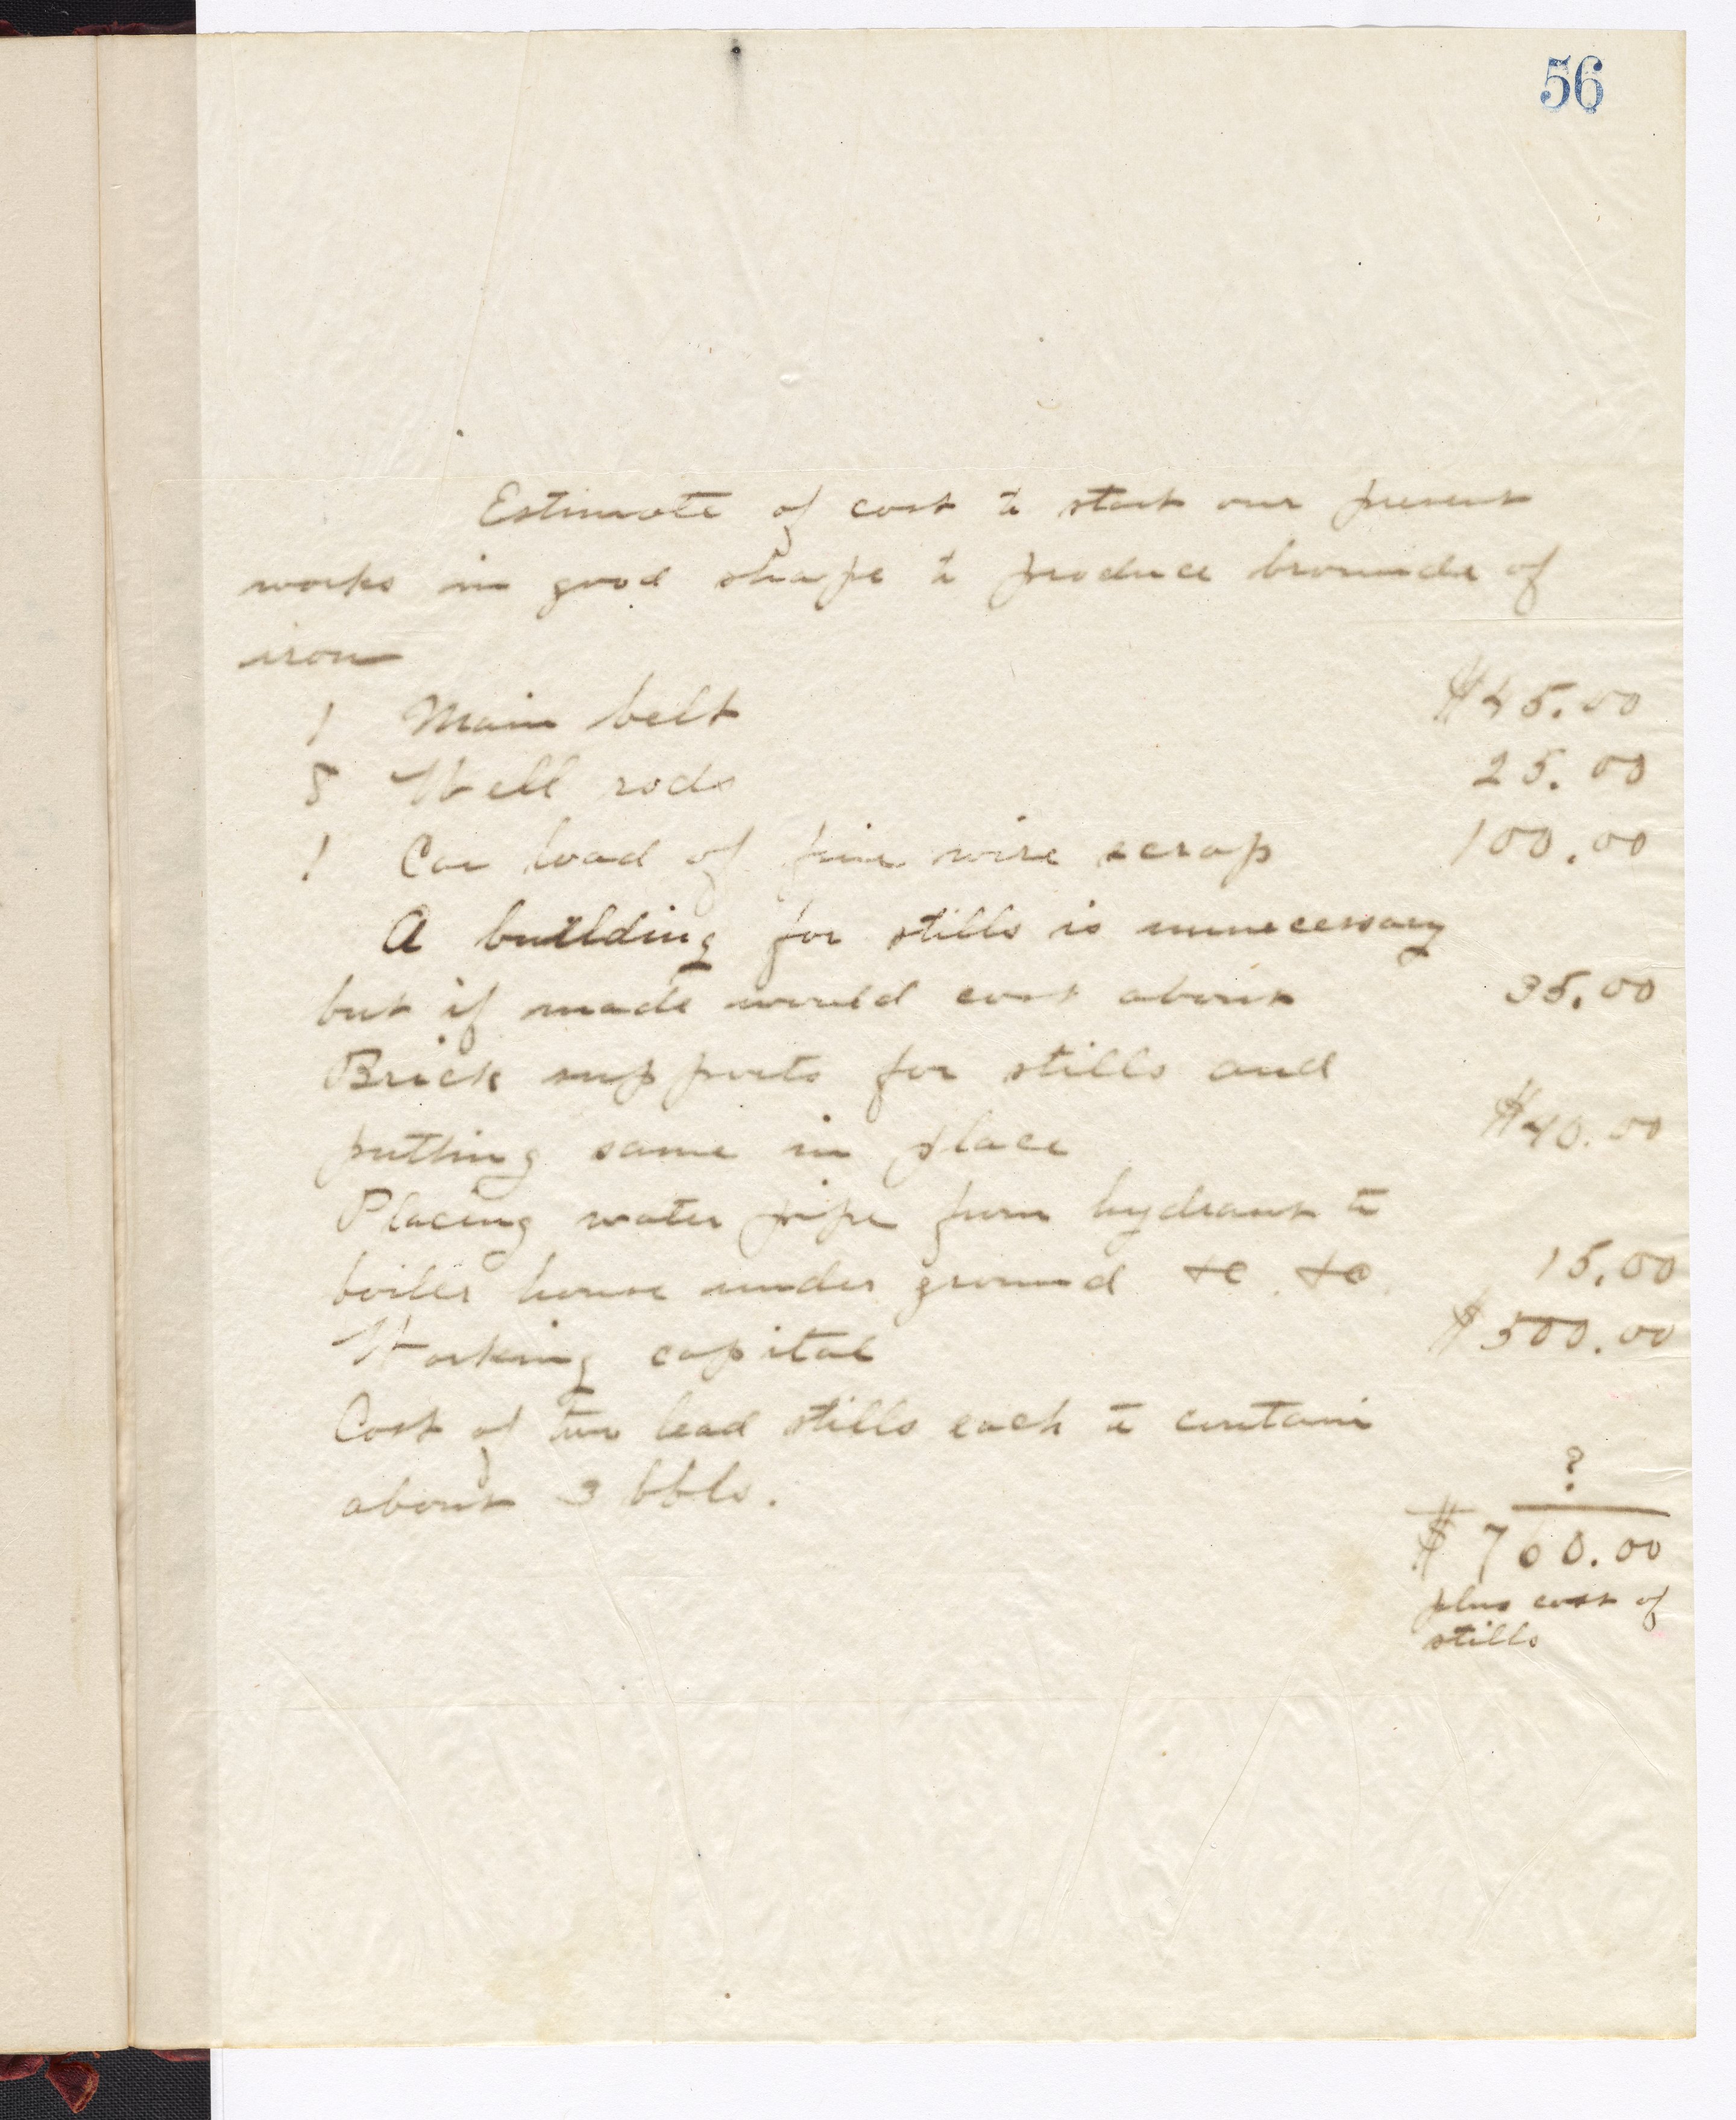 56
Estimate of cost to start our present
works in good shape to produce bromide of
iron
1 Main belt $45.00
8 Well rods 25.00
1 Car load of fine wire scrap 100.00
A building for stills is unnecessary
but if made would cost about 35.00
Brick supports for stills and
putting same in place $40.00
Placing water pipe from hydrant to
boiler house under ground &c. &c. 15.00
Working capital $500.00
Cost of two lead stills each to contain
about 3 bbls. ?
$760.00
plus cost of
stills